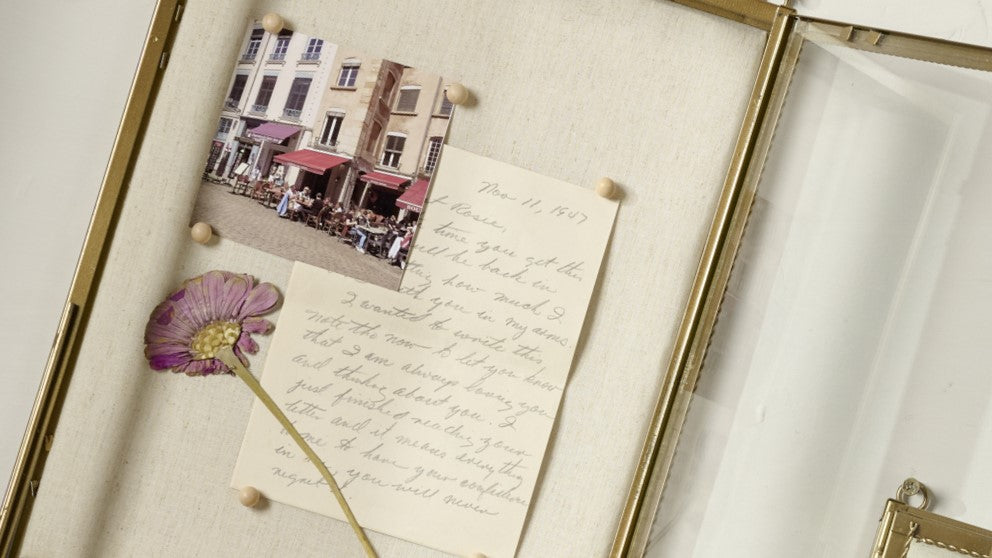 Nov 11, 1947
Rosie,
time you get this
will be back in
how much I
with you in my arms
I wanted to write this
note tho now to let you know
that I am always loving you
and thinking about you. I
just finished reading your
letter and it means everything
to me to have your confidence
in me you will never
regret